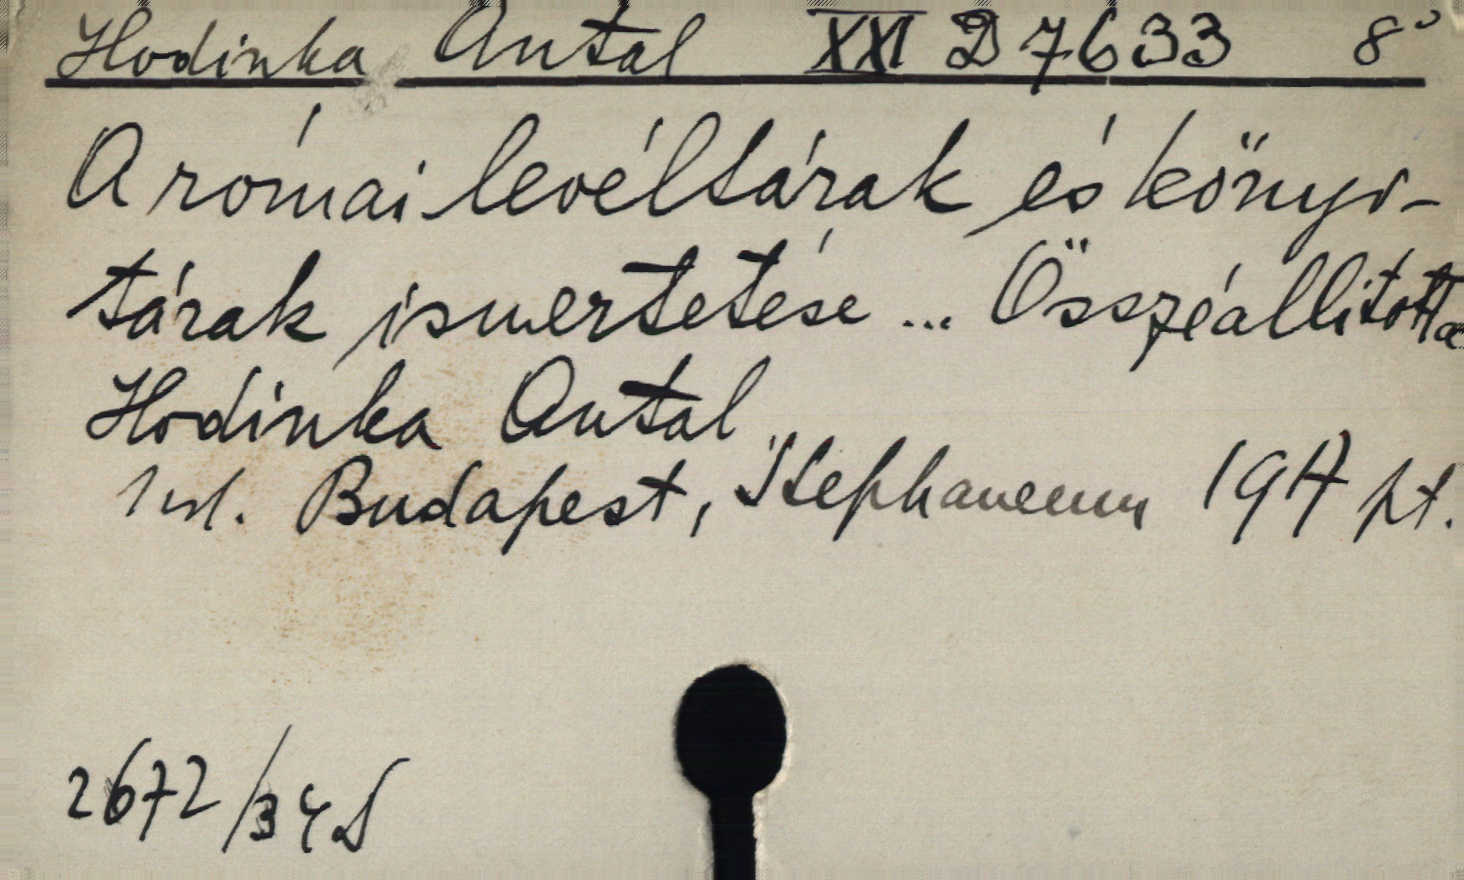 Hodinka Antal XXI D 7633 8°
A római levéltárak és könyv-
tárak ismertetése ... Összeállitotta
Hodinka Antal.
Budapest, Stephaneum 1917 pt.
2672/34